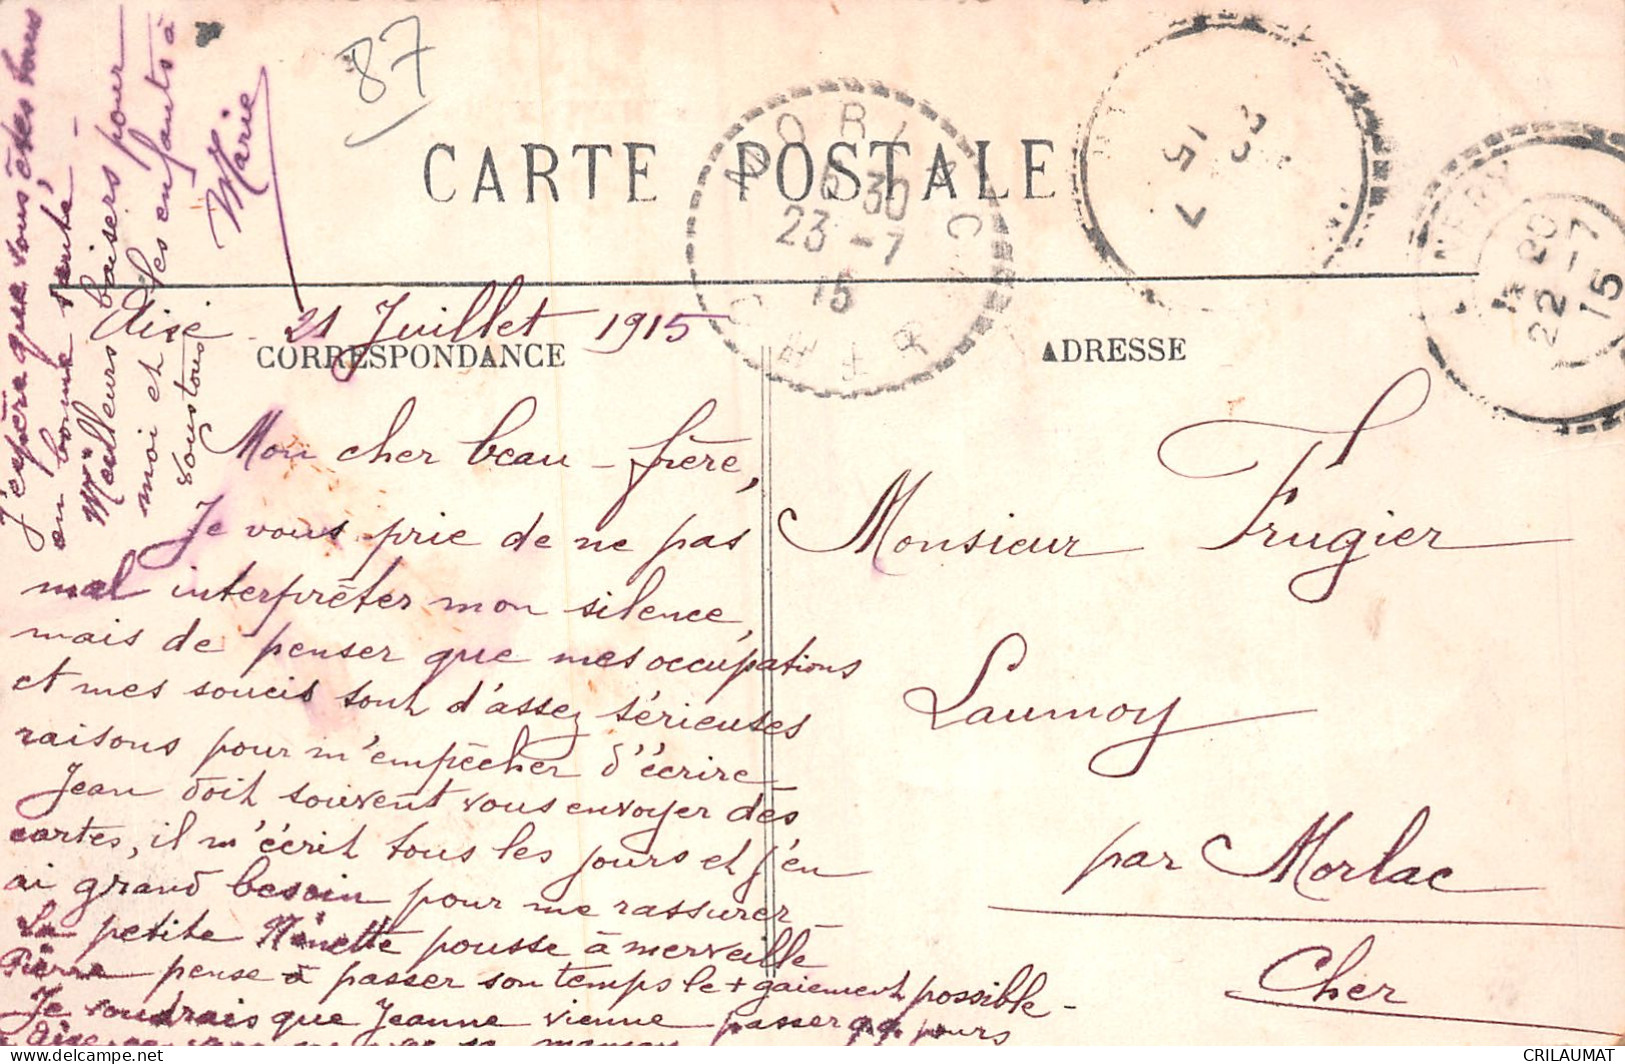 87
CARTE POSTALE
MORLAC
6 30
23 - 7
15
CHER
22
7
15
MERY
22 - 7
15
Aixe 21 Juillet 1915
CORRESPONDANCE
ADRESSE
Mon cher beau-frère,
Je vous prie de ne pas
mal interprêter mon silence,
mais de penser que mes occupations
et mes soucis sont d'assez sérieuses
raisons pour m'empêcher d'écrire
Jean doit souvent vous envoyer des
cartes, il m'écrit tous les jours et j'en
ai grand besoin pour me rassurer
La petite Nénette pousse à merveille
Pierre pense à passer son temps le + gaiement possible -
Je voudrais que Jeanne vienne passer qq. jours
J'espère que vous êtes tous
en bonne santé -
Meilleurs baisers pour
moi et les enfants à
vous tous
Marie
Monsieur Frugier
Laumoy
par Morlac
Cher
CRILAUMAT